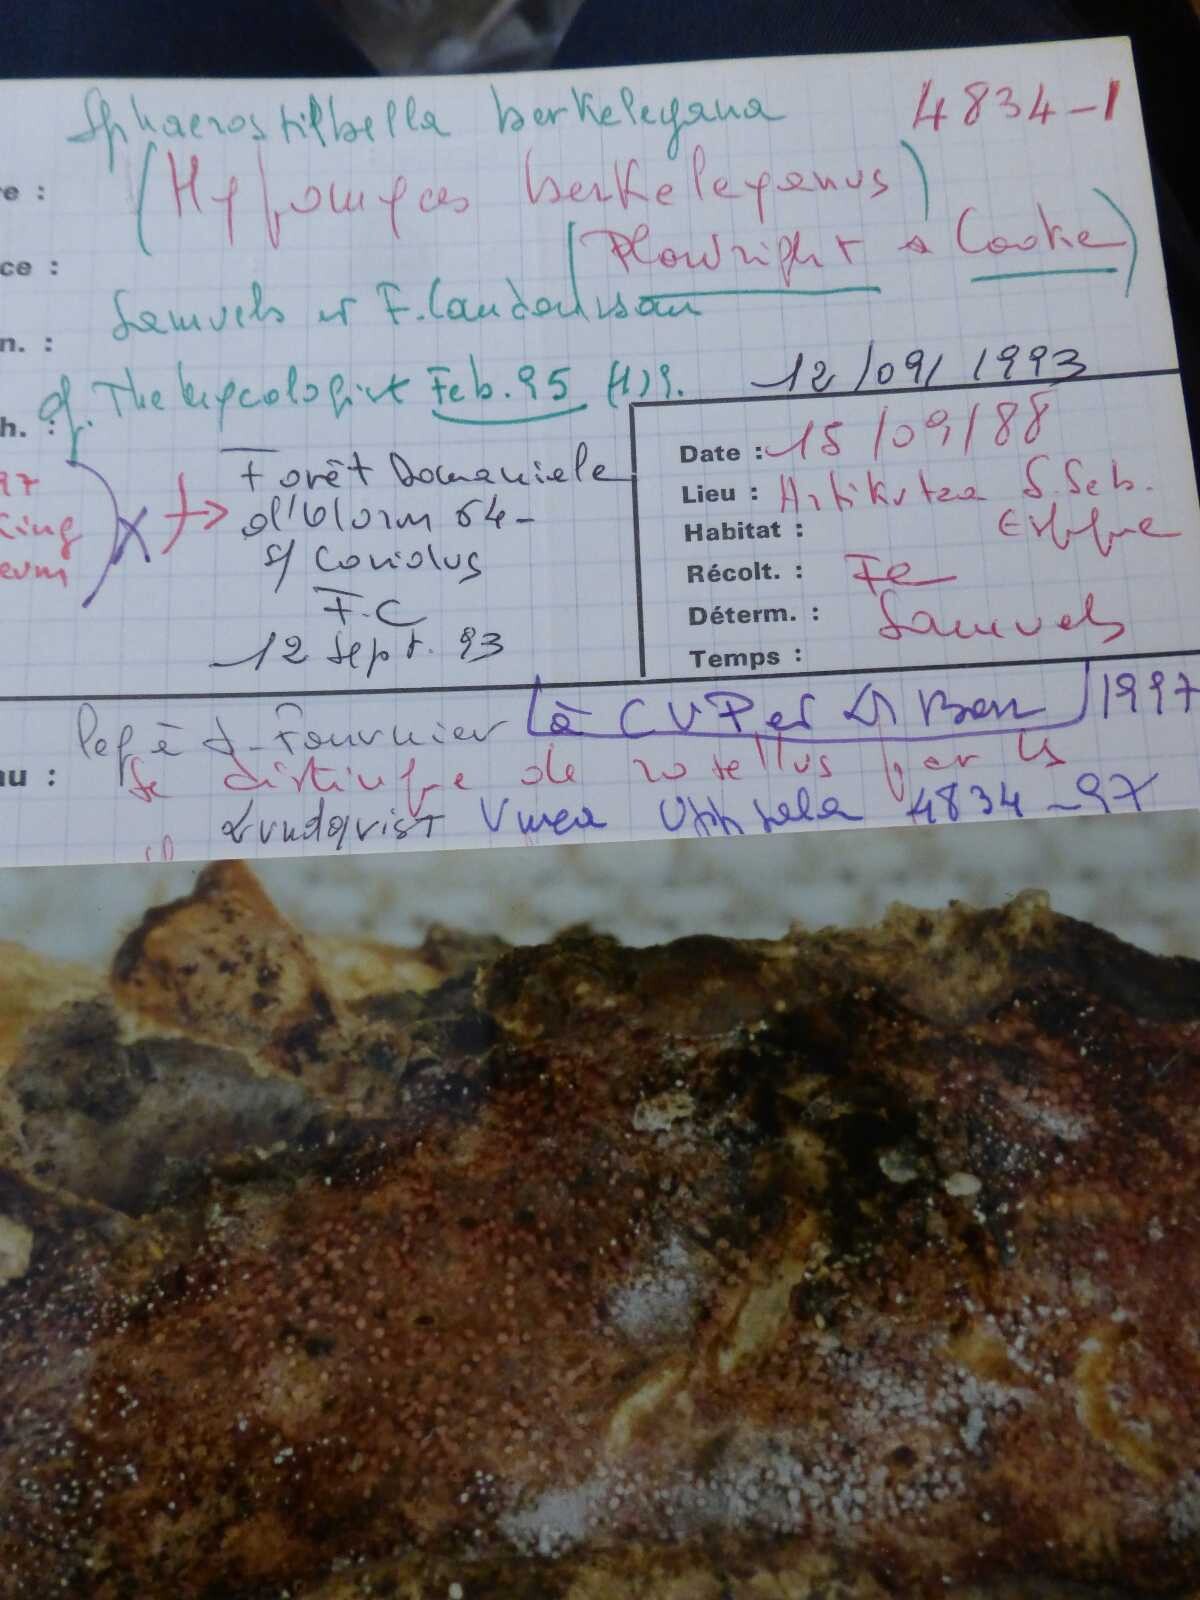 Sphaerostilbella berkeleyana 4834-1
re :
(Hypomyces berkeleyanus)
(Plowright & Cooke)
ce :
Samuels et F. Candoussau
n. :
cf. The Mycologist Feb. 95 (1)9.
12/09/1993
h. :
97
King
Forêt Domaniale
d'Olorm 64-
s/ Coriolus
F.C
12 Sept. 93
Date : 15/09/88
Lieu : Artikutza S. Seb.
Habitat : Espagne
Récolt. : Fc
Déterm. : Samuels
Temps :
à J. Fournier (à CUP et 1997
au : Se distingue de rosellus par
Lundqvist Uppsala 4834-97